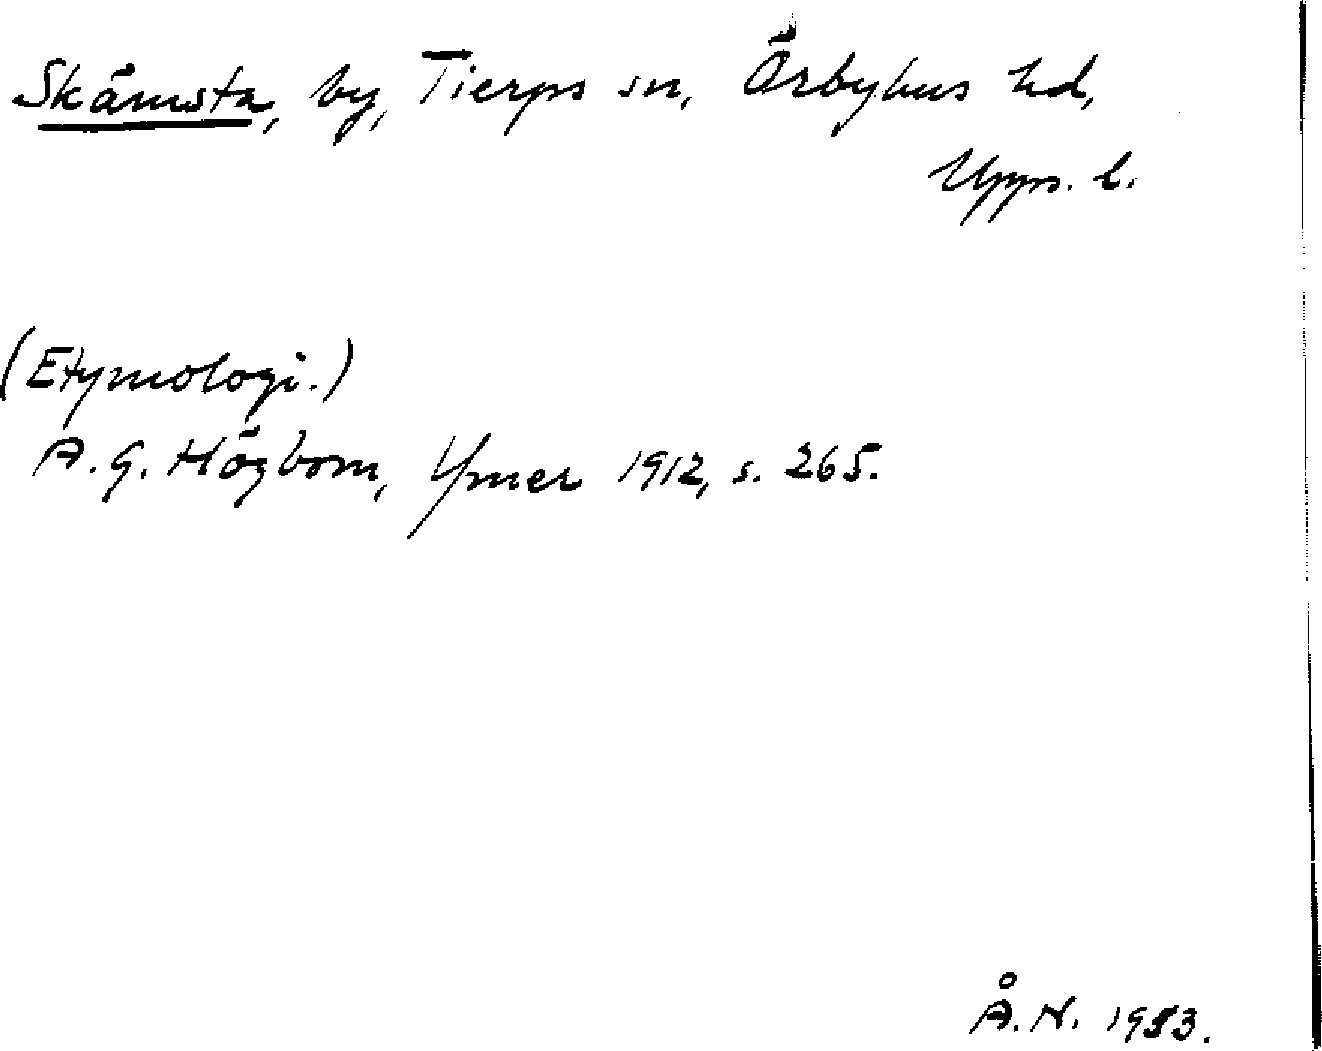 Skämsta, by, Tierps sn, Örbyhus hd,
Upps. l.
(Etymologi.)
A. G. Högbom, Ymer 1912, s. 265.
Å. N. 1953.